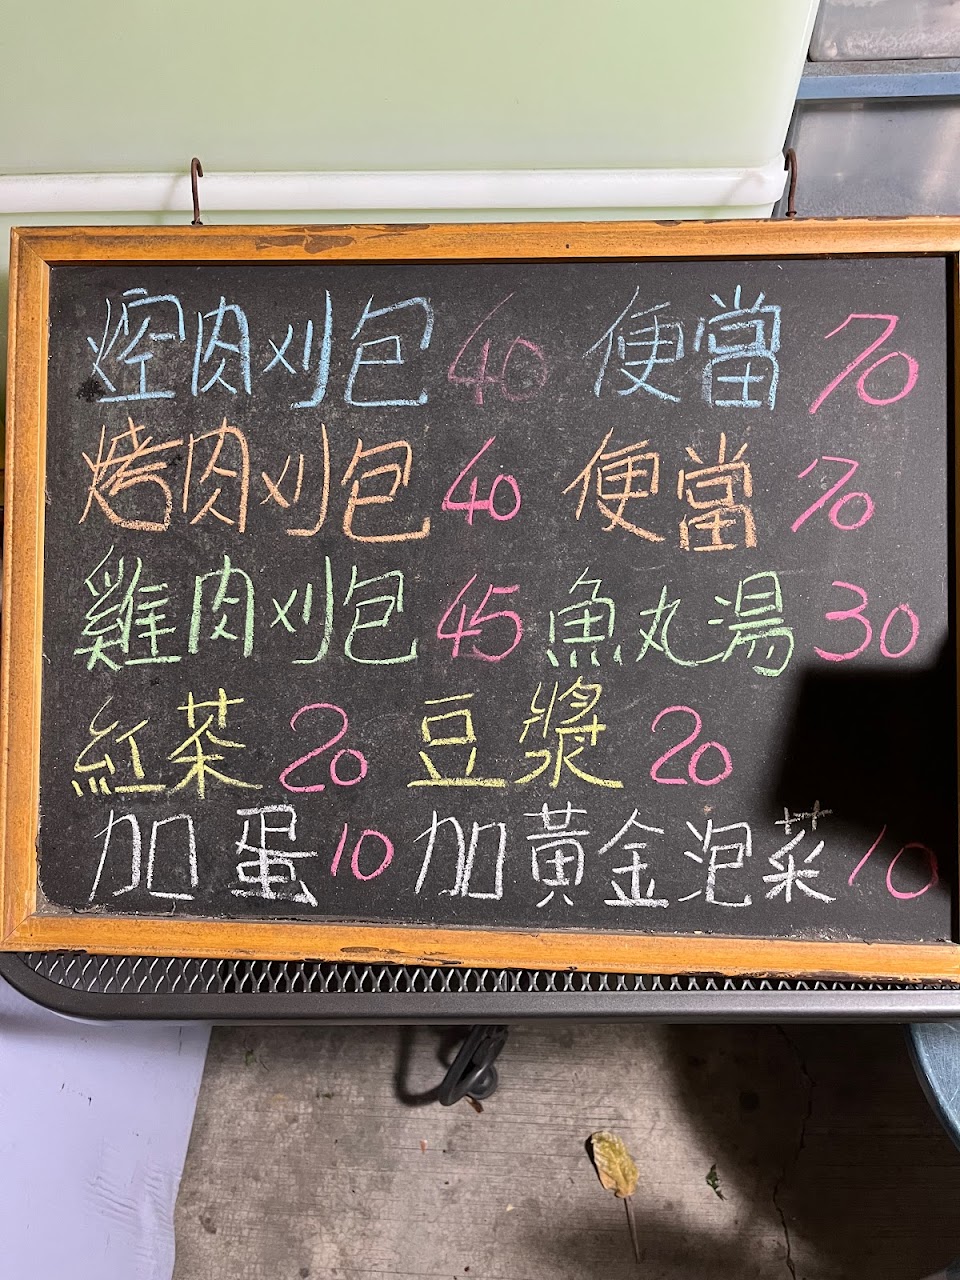 焢肉刈包 40 便當 70
烤肉刈包 40 便當 70
雞肉刈包 45 魚丸湯 30
紅茶 20 豆漿 20
加蛋 10 加黃金泡菜 10